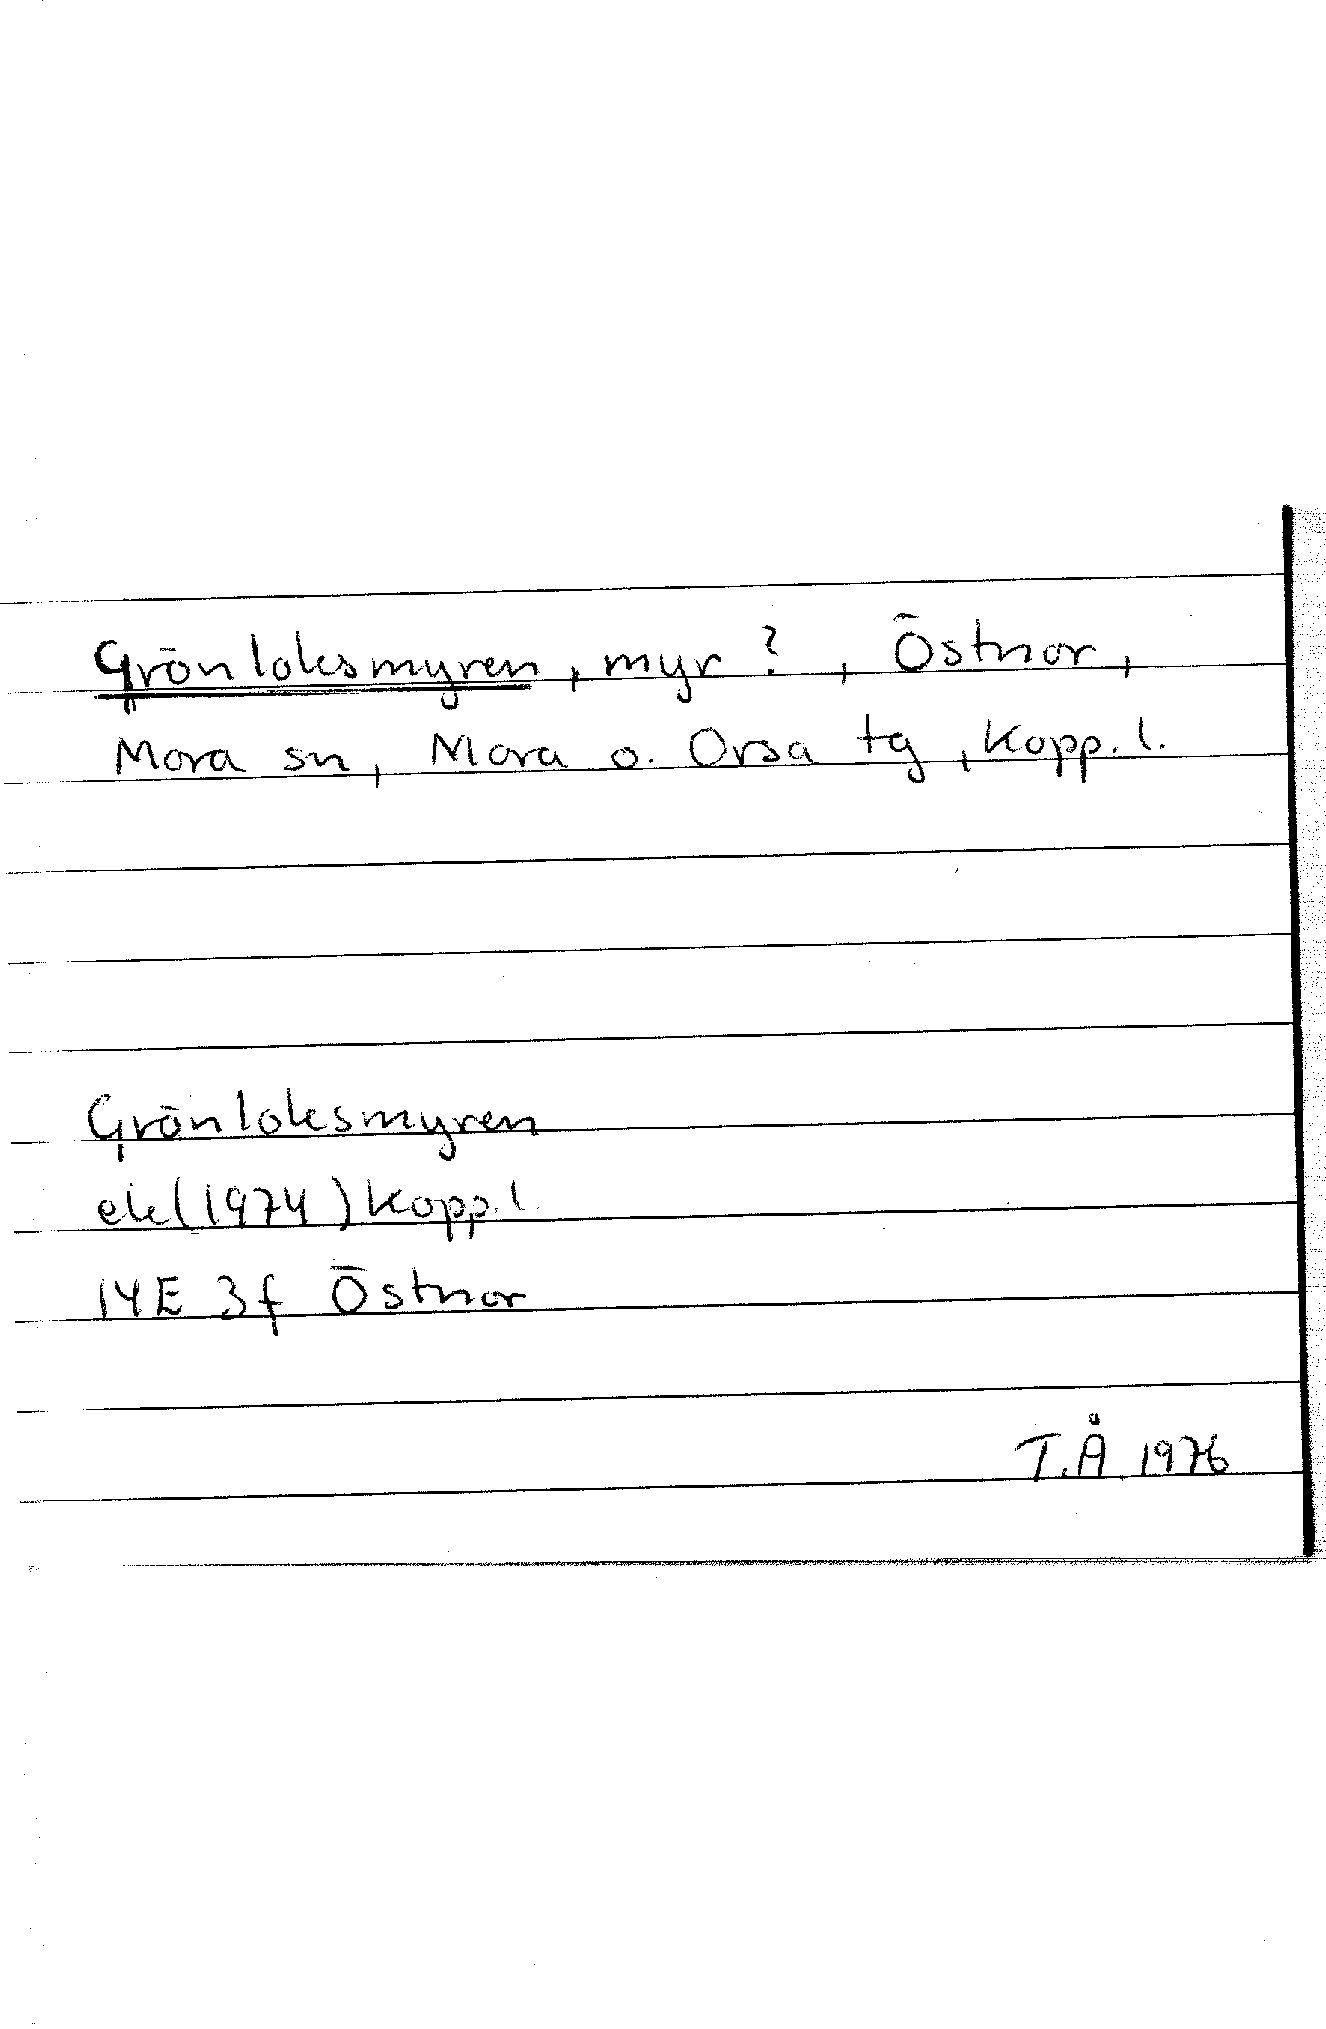 Grönloksmyren, myr?, Östnor,
Mora sn, Mora o. Orsa tg, Kopp. l.
Grönloksmyren
ek (1974) Kopp. l.
14E 3f Östnor
T.Å. 1976